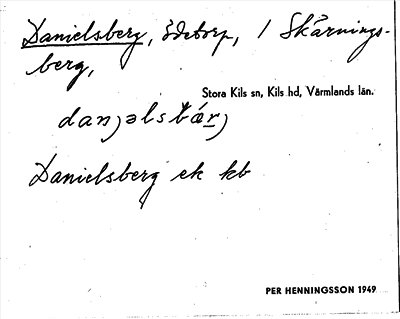 Danielsberg, ödetorp, / Skärnings-
berg,
Stora Kils sn, Kils hd, Värmlands län.
Danielsberg ek kb
PER HENNINGSSON 1949